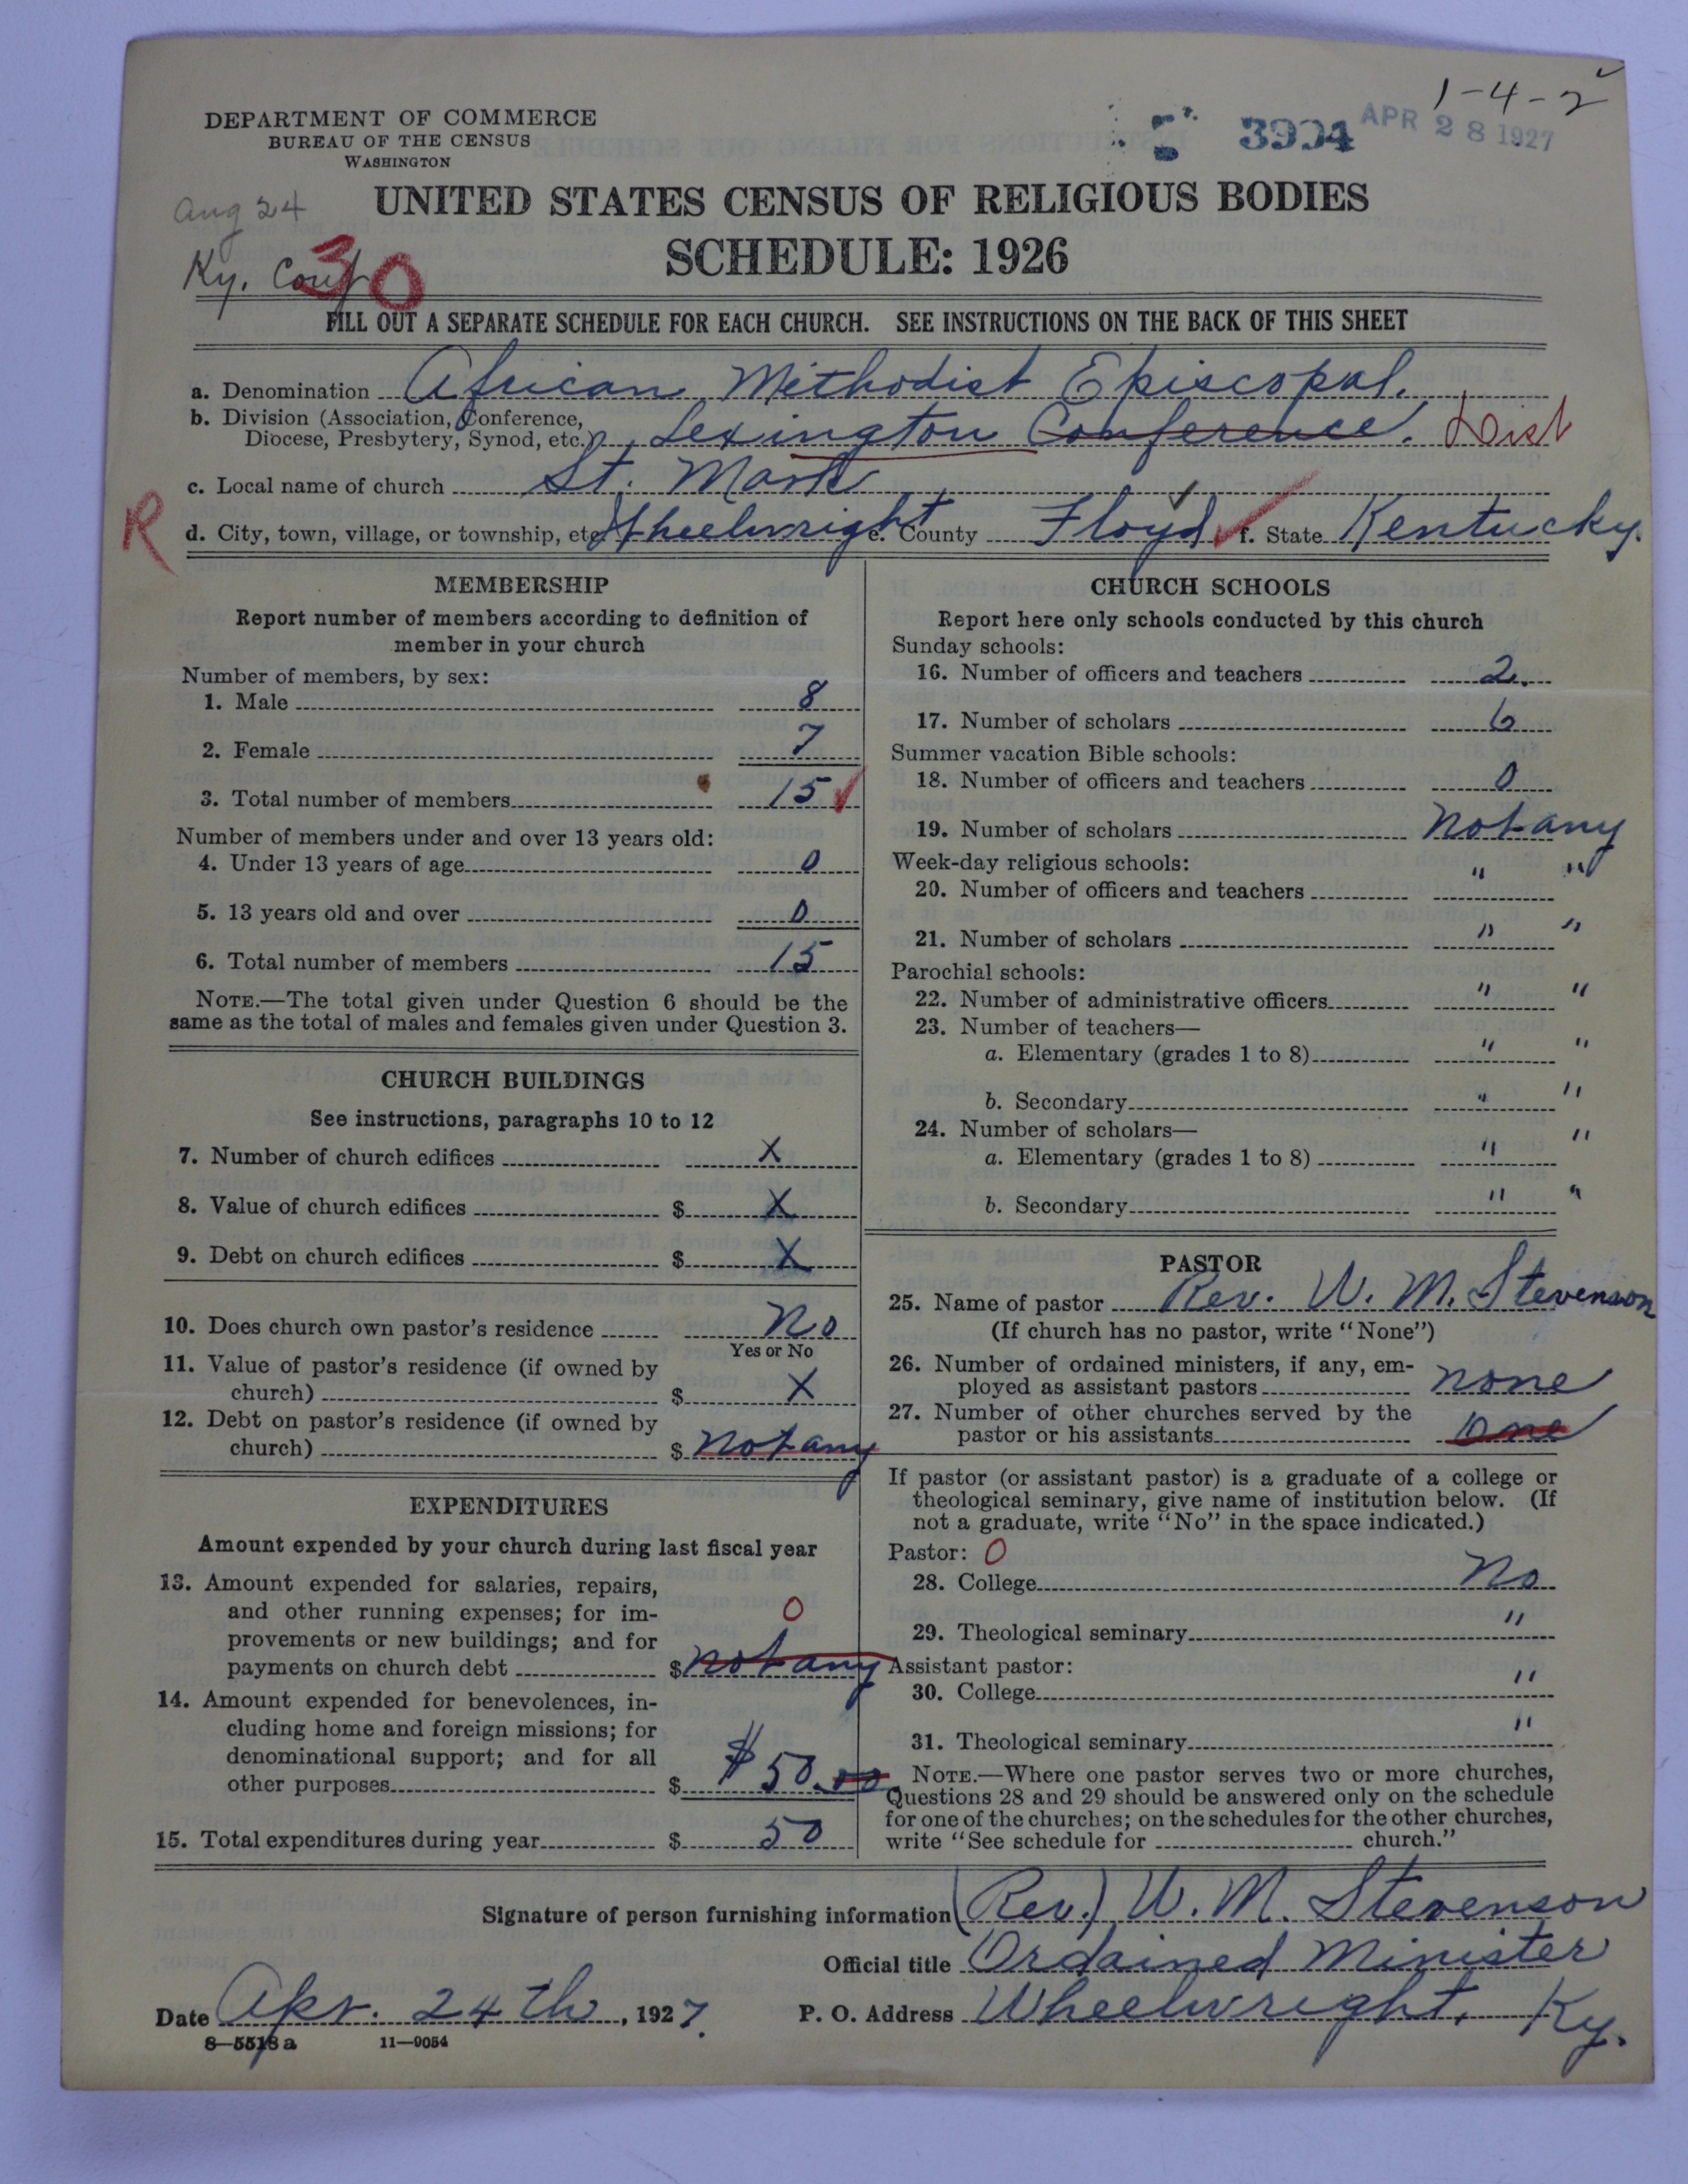 1-4-2
DEPARTMENT OF COMMERCE
BUREAU OF THE CENSUS
WASHINGTON
5 3994 APR 28 1927
Aug 24
UNITED STATES CENSUS OF RELIGIOUS BODIES
SCHEDULE: 1926
Ky. Conf
30
FILL OUT A SEPARATE SCHEDULE FOR EACH CHURCH. SEE INSTRUCTIONS ON THE BACK OF THIS SHEET
a. Denomination African Methodist Episcopal.
b. Division (Association, Conference,
Diocese, Presbytery, Synod, etc.) Lexington Conference. Dist
c. Local name of church St. Mark
R
d. City, town, village, or township, etc. Wheelwright e. County Floyd f. State Kentucky.
MEMBERSHIP
Report number of members according to definition of
member in your church
Number of members, by sex:
1. Male 8
2. Female 7
3. Total number of members 15
Number of members under and over 13 years old:
4. Under 13 years of age 0
5. 13 years old and over 0
6. Total number of members 15
NOTE.—The total given under Question 6 should be the
same as the total of males and females given under Question 3.
CHURCH BUILDINGS
See instructions, paragraphs 10 to 12
7. Number of church edifices X
8. Value of church edifices $ X
9. Debt on church edifices $ X
10. Does church own pastor's residence No
Yes or No
11. Value of pastor's residence (if owned by
church) $ X
12. Debt on pastor's residence (if owned by
church) $ not any
EXPENDITURES
Amount expended by your church during last fiscal year
13. Amount expended for salaries, repairs,
and other running expenses; for im-
provements or new buildings; and for
payments on church debt $ not any
0
14. Amount expended for benevolences, in-
cluding home and foreign missions; for
denominational support; and for all
other purposes $ $50.00
15. Total expenditures during year $ 50
CHURCH SCHOOLS
Report here only schools conducted by this church
Sunday schools:
16. Number of officers and teachers 2.
17. Number of scholars 6
Summer vacation Bible schools:
18. Number of officers and teachers 0
19. Number of scholars not any
Week-day religious schools:
20. Number of officers and teachers " "
21. Number of scholars " "
Parochial schools:
22. Number of administrative officers " "
23. Number of teachers—
a. Elementary (grades 1 to 8) " "
b. Secondary " "
24. Number of scholars—
a. Elementary (grades 1 to 8) " "
b. Secondary " "
PASTOR
25. Name of pastor Rev. W. M. Stevenson
(If church has no pastor, write "None")
26. Number of ordained ministers, if any, em-
ployed as assistant pastors none
27. Number of other churches served by the
pastor or his assistants One
If pastor (or assistant pastor) is a graduate of a college or
theological seminary, give name of institution below. (If
not a graduate, write "No" in the space indicated.)
Pastor: 0
28. College No
29. Theological seminary "
Assistant pastor:
30. College "
31. Theological seminary "
NOTE.—Where one pastor serves two or more churches,
Questions 28 and 29 should be answered only on the schedule
for one of the churches; on the schedules for the other churches,
write "See schedule for church."
Signature of person furnishing information (Rev.) W. M. Stevenson
Official title Ordained Minister
Date Apr. 24th, 1927. P. O. Address Wheelwright, Ky.
8—5518a 11—9054